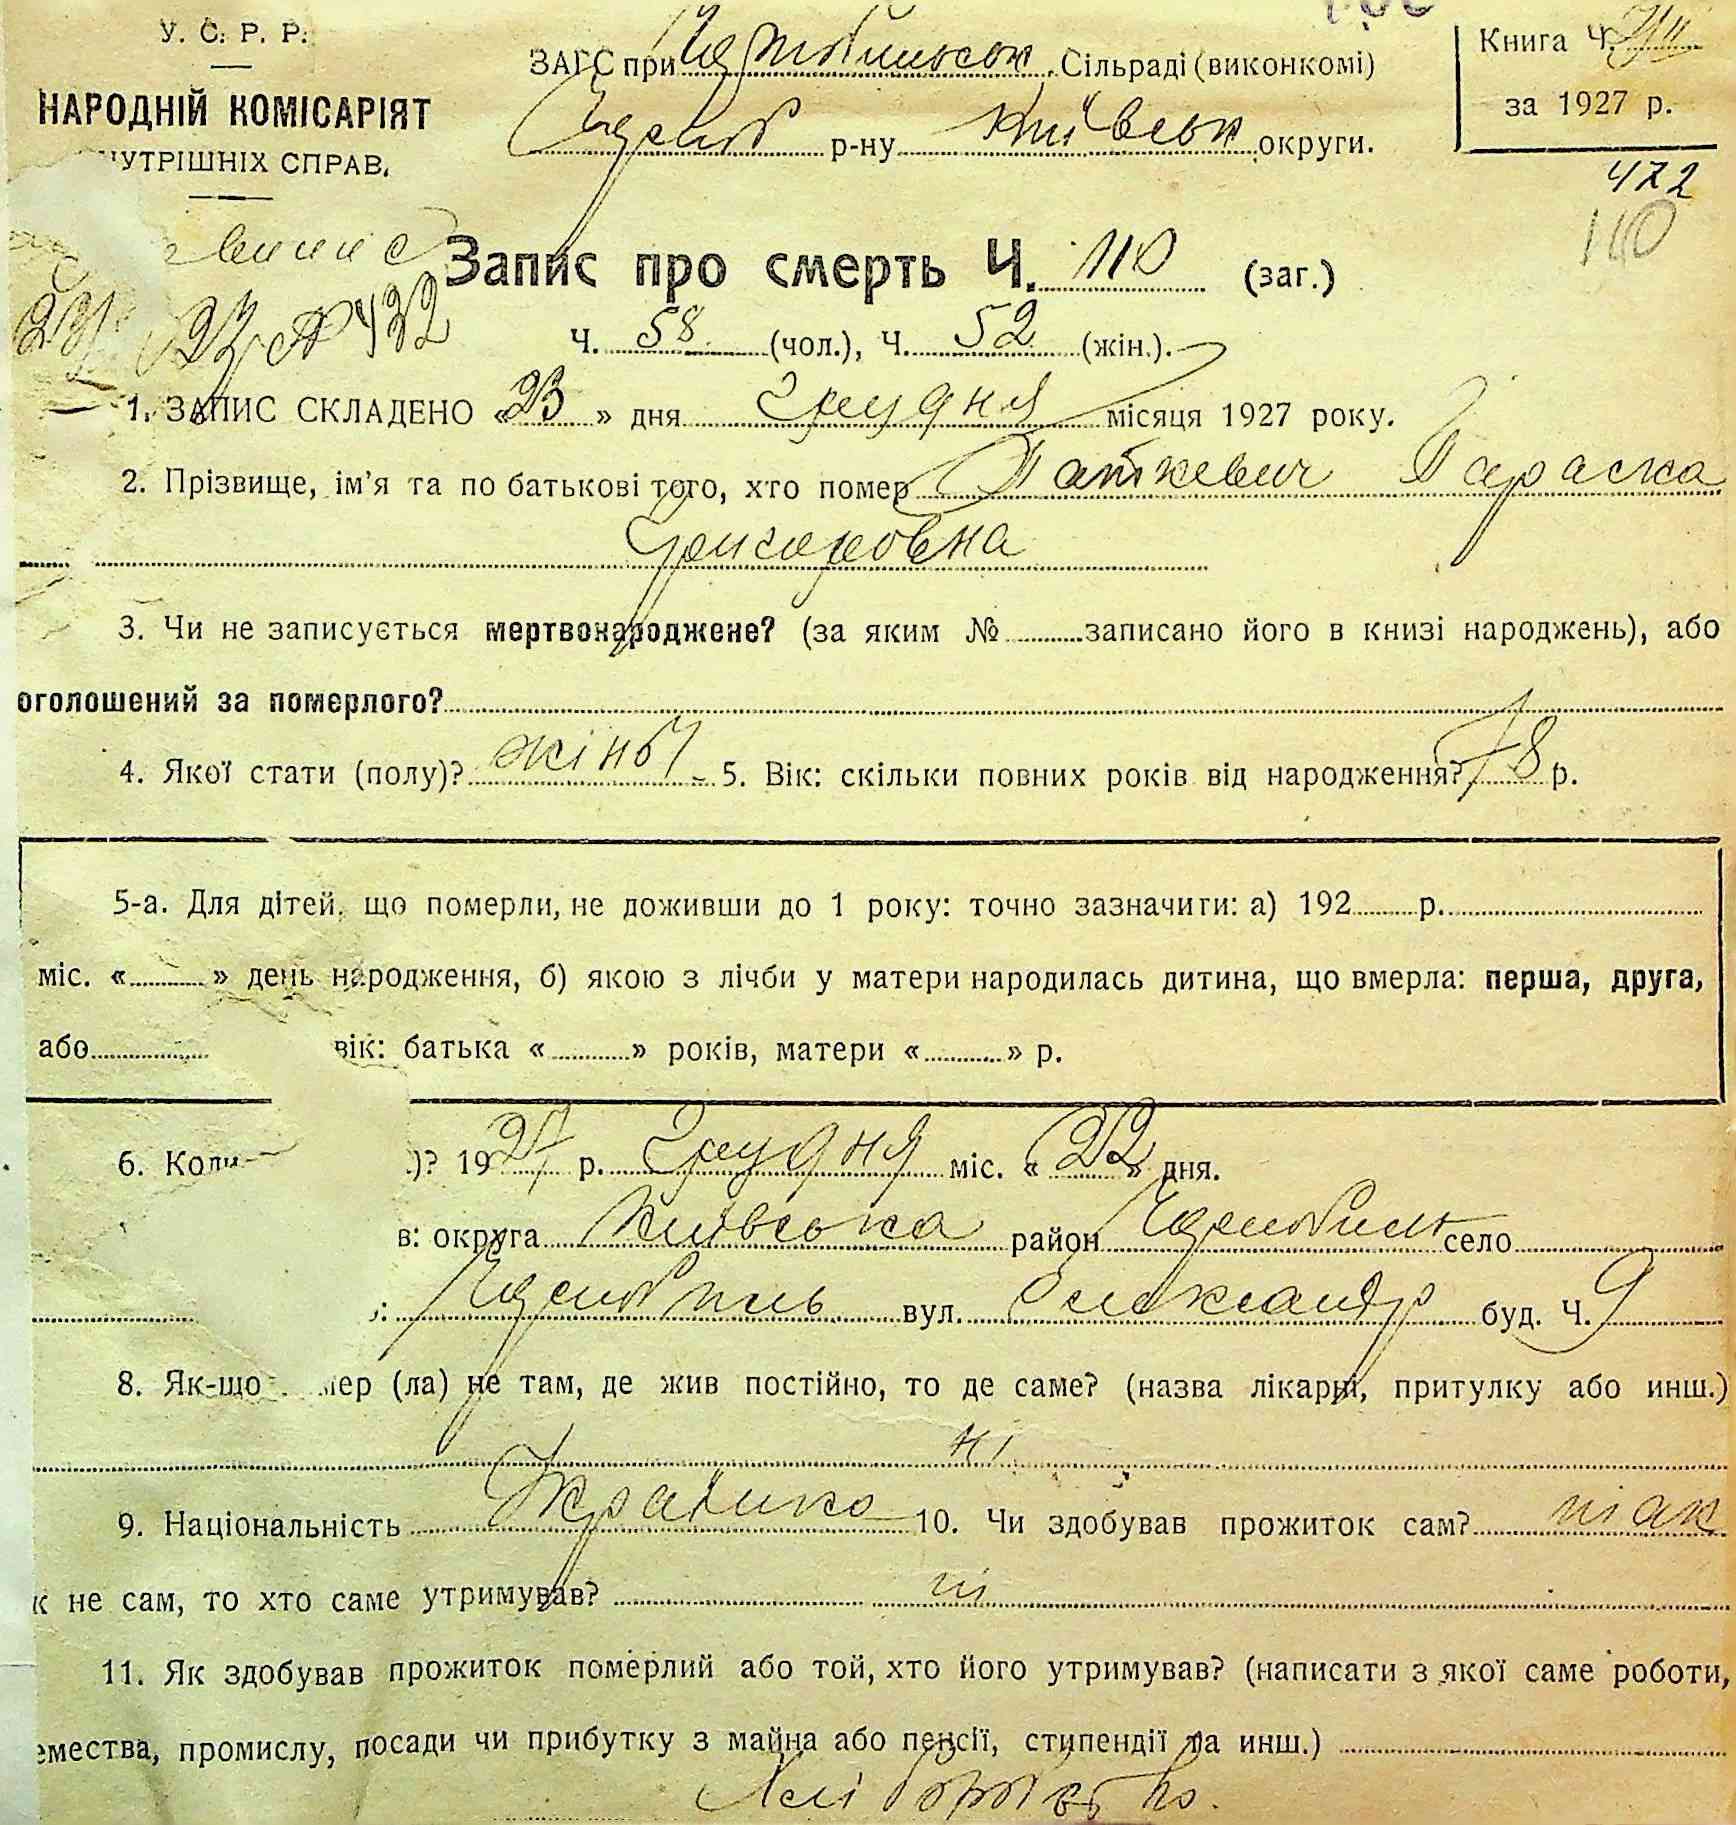 У. С. Р. Р.
НАРОДНІЙ КОМІСАРІЯТ
НУТРІШНІХ СПРАВ.
ЗАГС при Чорнобильськ. Сільраді (виконкомі)
Чорноб р-ну Київськ округи.
Книга Ч.
за 1927 р.
472
110
Запис про смерть Ч. 110 (заг.)
Ч. 58 (чол.), Ч. 52 (жін.).
1. ЗАПИС СКЛАДЕНО «23» дня грудня місяця 1927 року.
2. Прізвище, ім'я та по батькові того, хто помер Паткевич Параска
Григоровна
3. Чи не записується мертвонароджене? (за яким № записано його в книзі народжень), або
оголошений за померлого?
4. Якої стати (полу)? жіноч 5. Вік: скільки повних років від народження? 78 р.
5-а. Для дітей, що померли, не доживши до 1 року: точно зазначити: а) 192 р.
міс. « » день народження, б) якою з лічби у матери народилась дитина, що вмерла: перша, друга,
або вік: батька « » років, матери « » р.
6. Коли )? 1927 р. грудня міс. «22» дня.
в: округа Київська район Чорнобиль село
: Чорнобиль вул. Олександр буд. Ч. 9
8. Як-що мер (ла) не там, де жив постійно, то де саме? (назва лікарні, притулку або инш.)
ні
9. Національність Українка 10. Чи здобував прожиток сам? так
к не сам, то хто саме утримував? ні
11. Як здобував прожиток померлий або той, хто його утримував? (написати з якої саме роботи,
емества, промислу, посади чи прибутку з майна або пенсії, стипендії та инш.)
Хліборобство.